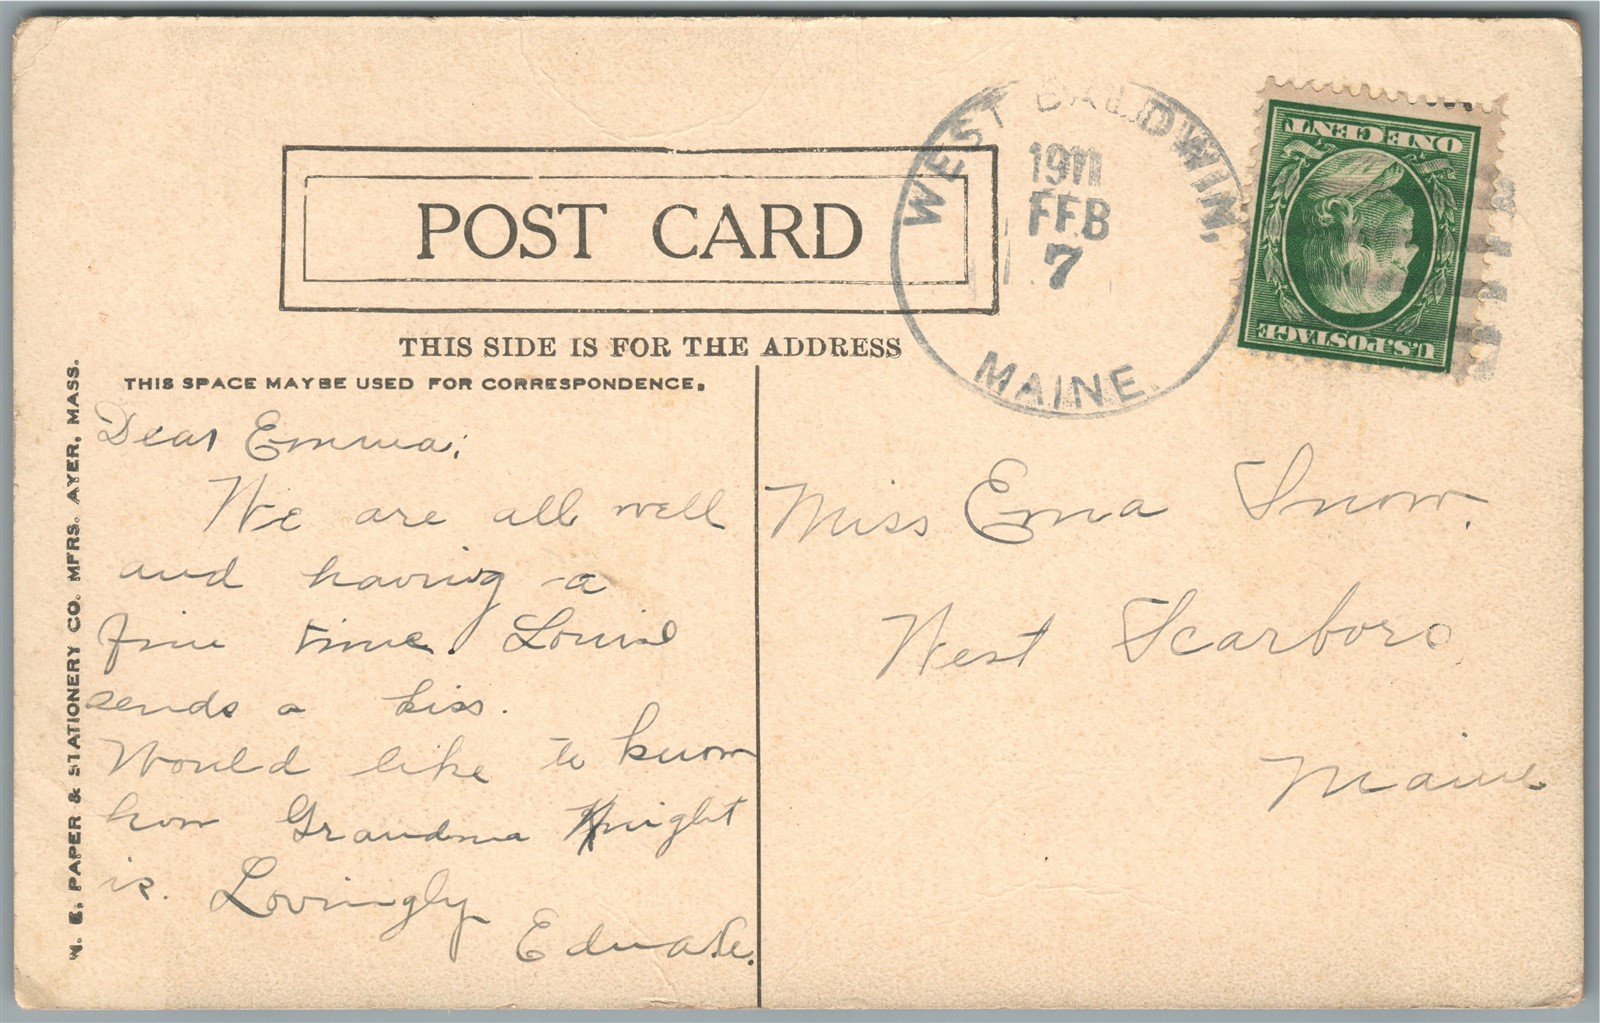 POST CARD
THIS SIDE IS FOR THE ADDRESS
THIS SPACE MAY BE USED FOR CORRESPONDENCE.
N. E. PAPER & STATIONERY CO. MFRS. AYER, MASS.
WEST BALDWIN,
1911
FEB
7
MAINE.
U.S. POSTAGE
ONE CENT
Dear Emma;
We are all well
and having a
fine time. Louise
sends a kiss.
Would like to know
how Grandma Knight
is. Lovingly
Miss Ema Snow.
West Scarboro,
Maine